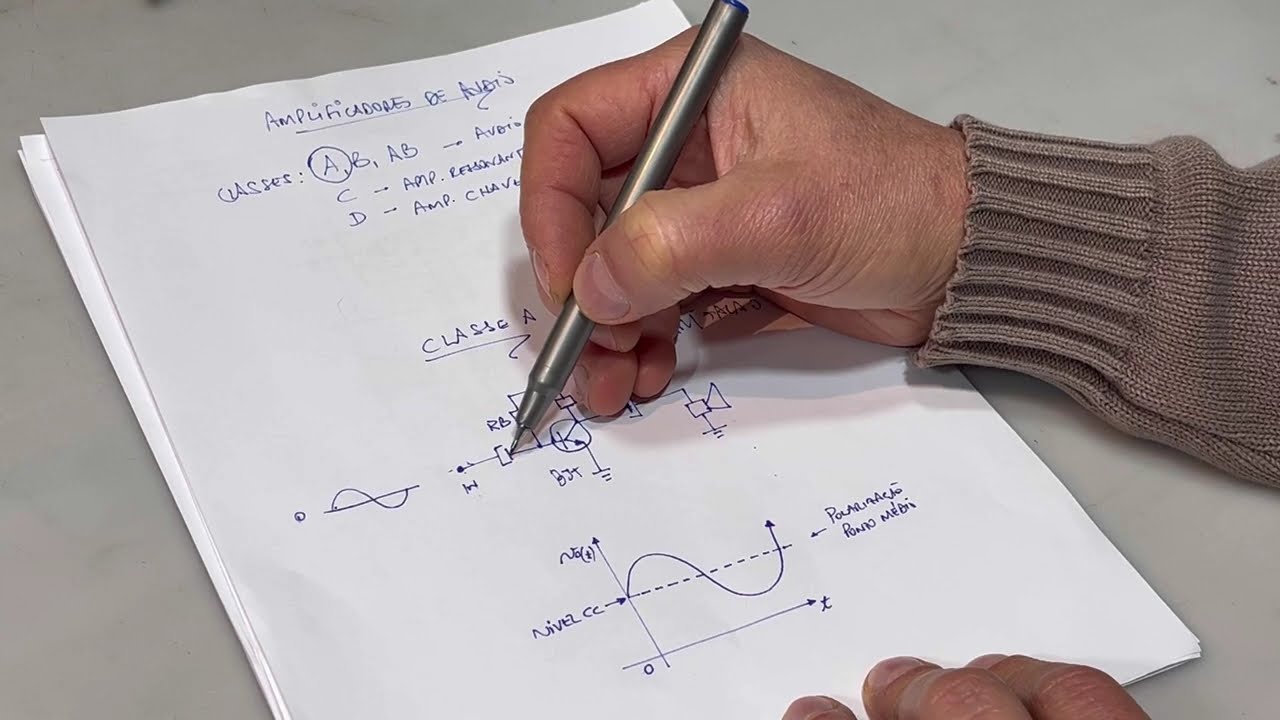 AMPLIFICADORES DE AUDIO
CLASSES: A, B, AB → AUDIO
C → AMP.
D → AMP.
CLASSE A
RB
IN
BJT
0
No(t)
POLARIZAÇÃO
PONTO MÉDIO
NÍVEL CC
t
0